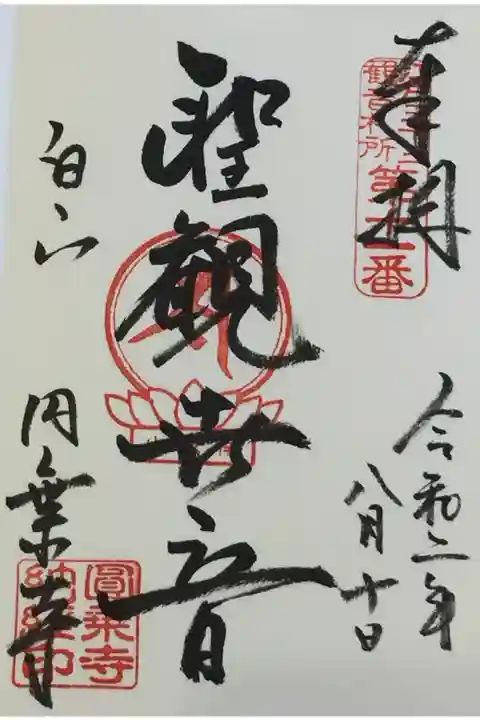 奉拝
観音札所
第十一番
令和二年
八月十日
聖觀世音
白山
円乗寺
圓乗寺
納経印